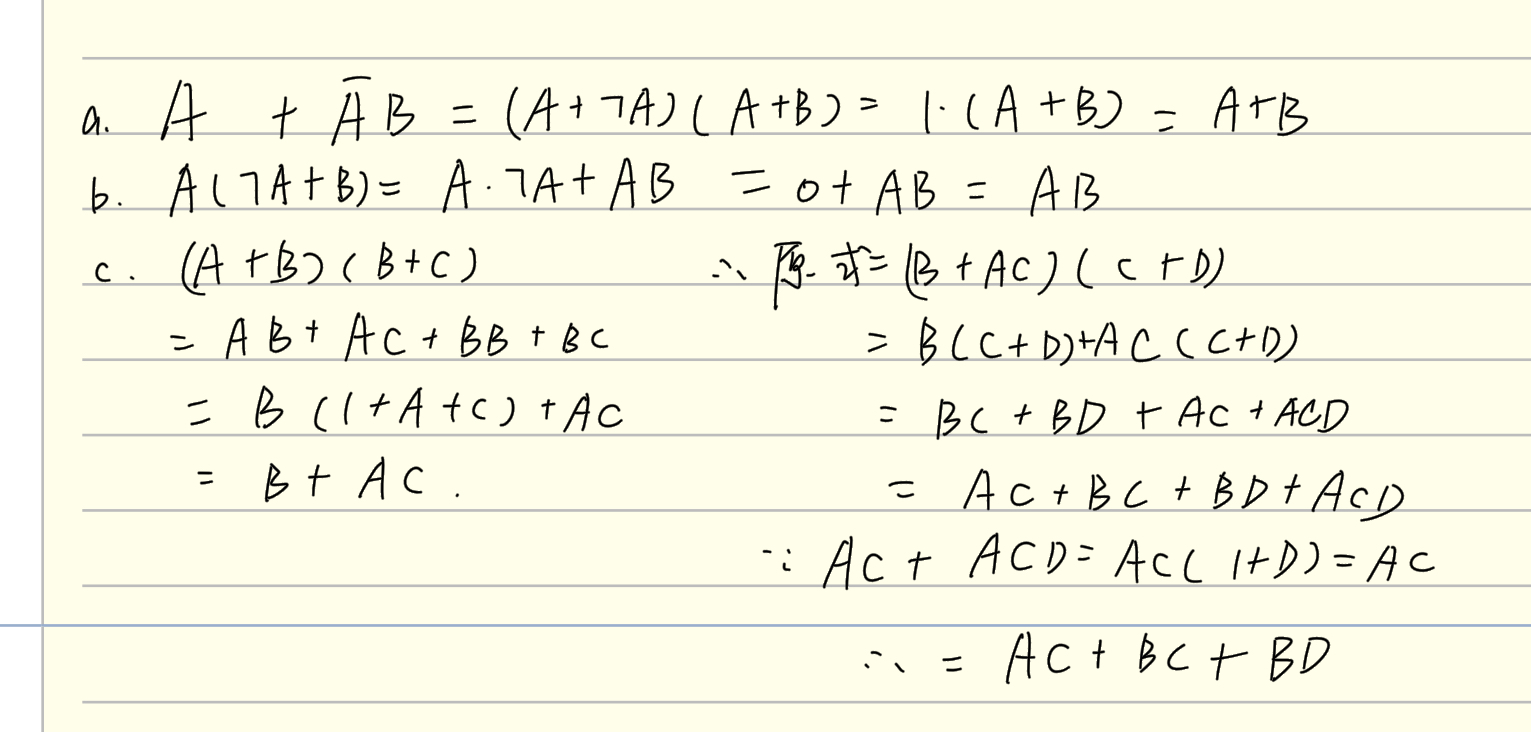 a. A + A̅B = (A+¬A)(A+B) = 1·(A+B) = A+B
b. A(¬A+B) = A·¬A+AB = 0+AB = AB
c. (A+B)(B+C)
= AB+AC+BB+BC
= B(1+A+C)+AC
= B+AC.
∴ 原式=(B+AC)(C+D)
= B(C+D)+AC(C+D)
= BC+BD+AC+ACD
= AC+BC+BD+ACD
∵ AC+ACD=AC(1+D)=AC
∴ = AC+BC+BD